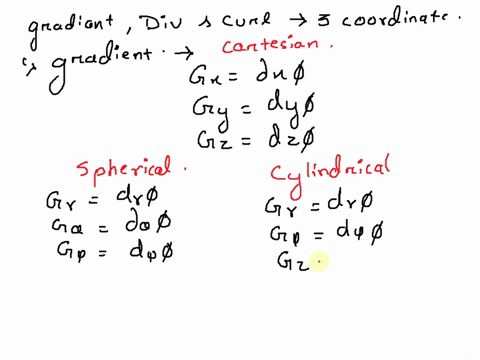 gradiant, Div & curl → 3 coordinate.
↳ gradient. → cartesian.
Gx = ∂xϕ
Gy = dyϕ
Gz = dzϕ
Spherical.
Gr = drϕ
Gθ = ∂θϕ
Gφ = dφϕ
Cylindrical
Gr = drϕ
Gφ = dφϕ
Gz